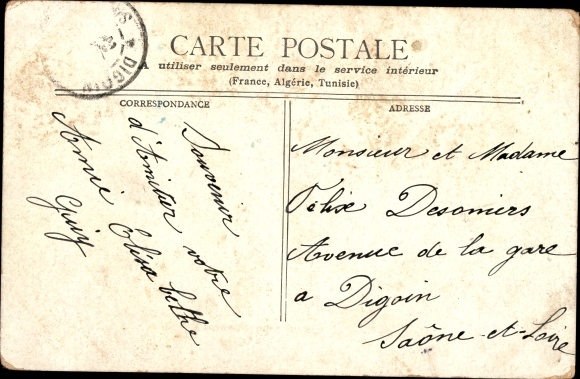 DIGOIN
CARTE POSTALE
A utiliser seulement dans le service intérieur
(France, Algérie, Tunisie)
CORRESPONDANCE
Souvenir
d'Amitier votre
Amie Elisa bethe
Guiy
ADRESSE
Monsieur et Madame
Félix Desomiers
Avenue de la gare
a Digoin
Saône-et-Loire